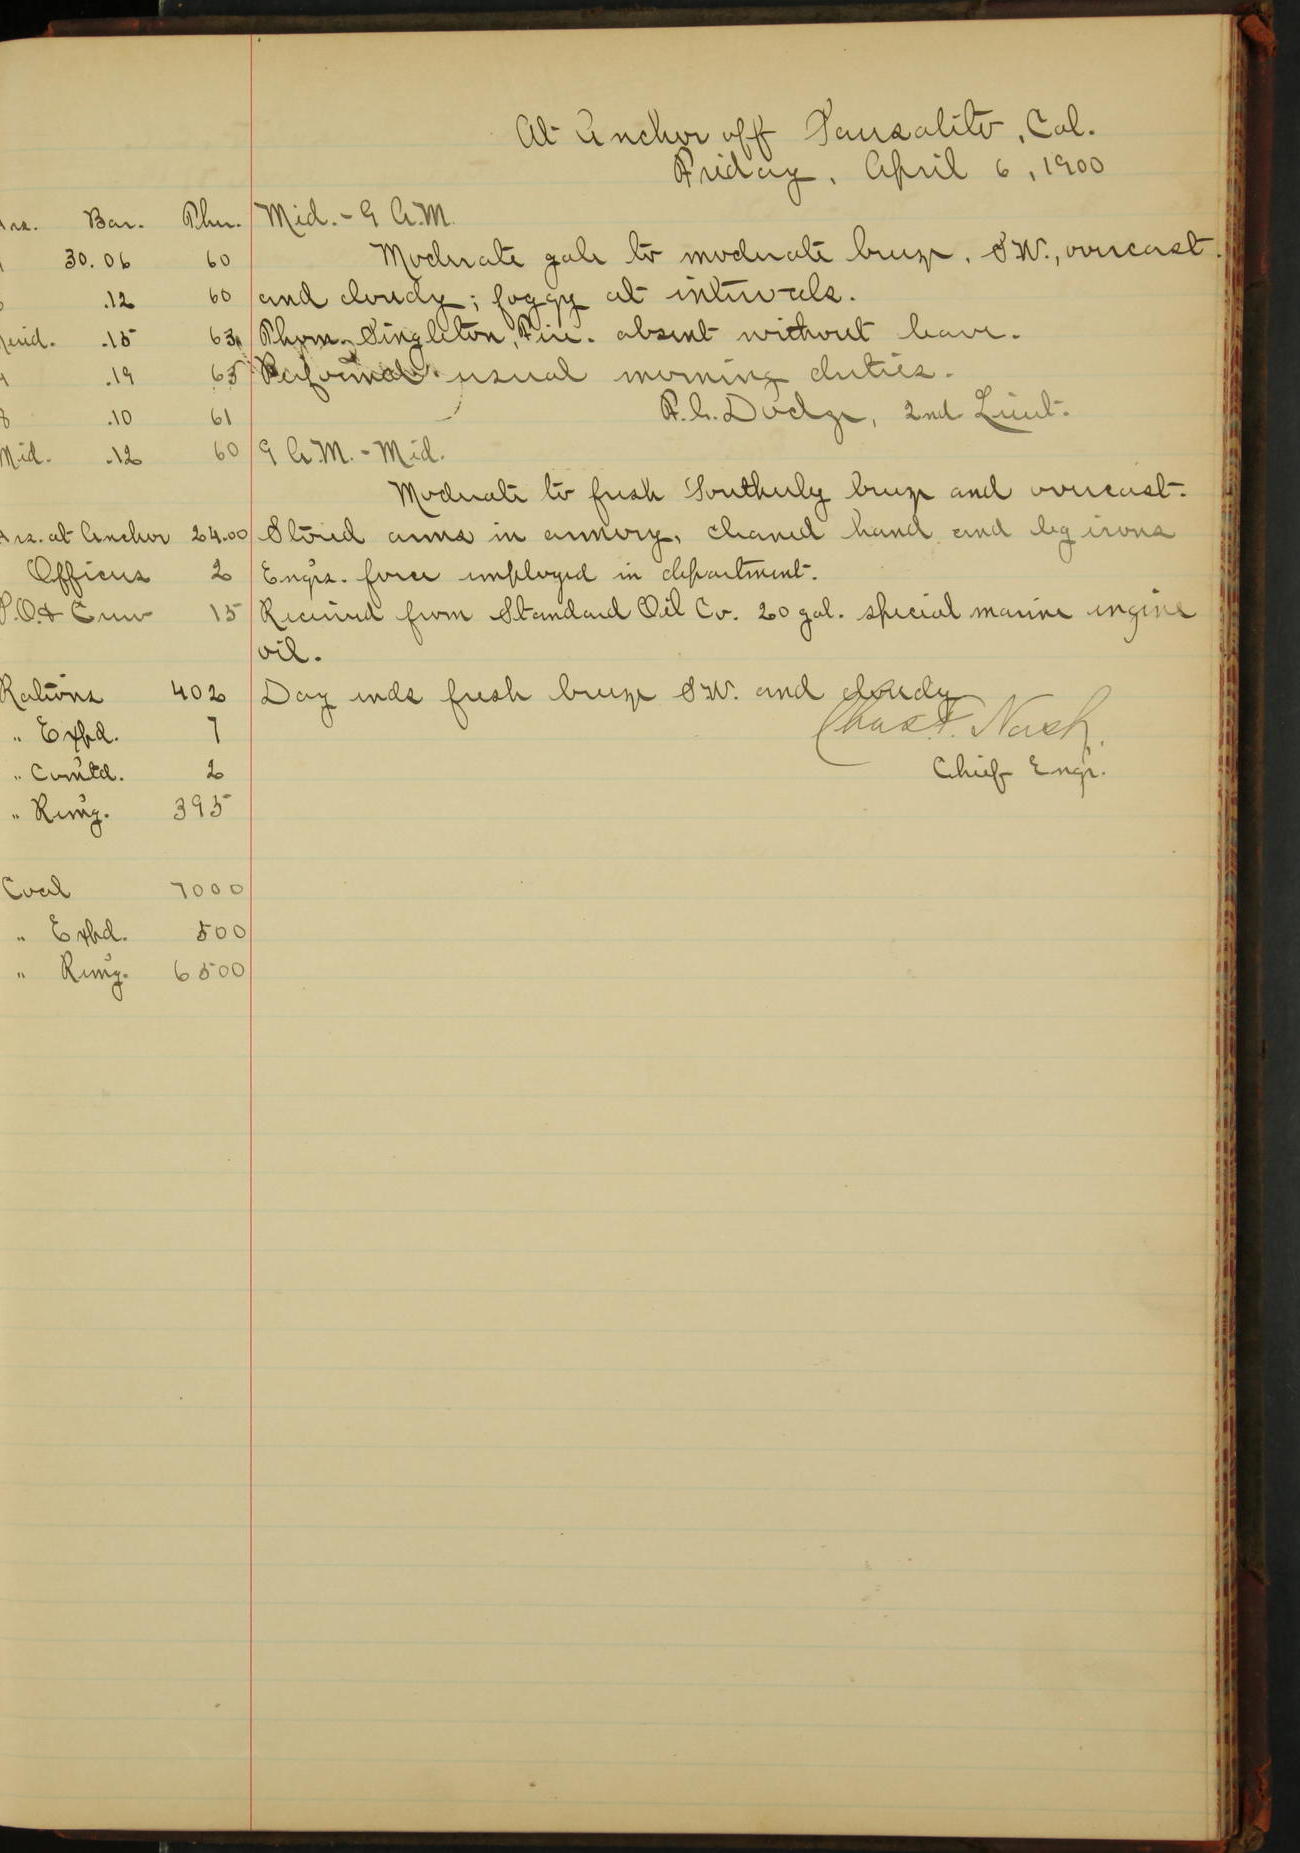 At Anchor off Sausalito, Cal.
Friday, April 6, 1900
Hrs. Bar. Ther.
4 30.06 60
8 .12 60
Merid. .15 63
4 .19 65
8 .10 61
Mid. .12 60
Hrs. at Anchor 24.00
Officers 2
P.O. & Crew 15
Rations 402
" Expd. 7
" Com'td. 2
" Rem'g. 395
Coal 7000
" Expd. 500
" Rem'g. 6500
Mid. - 9 A.M.
Moderate gale to moderate breeze, SW., overcast
and cloudy; foggy at intervals.
Thom. Singleton, Fire. absent without leave.
Performed usual morning duties.
F.G. Dodge, 2nd Lieut.
9 A.M. - Mid.
Moderate to fresh Southerly breeze and overcast.
Stored arms in armory, cleaned hand and leg irons
Engrs. force employed in department.
Received from Standard Oil Co. 20 gal. special marine engine
oil.
Day ends fresh breeze SW. and cloudy
Chas. F. Nash.
Chief Engr.